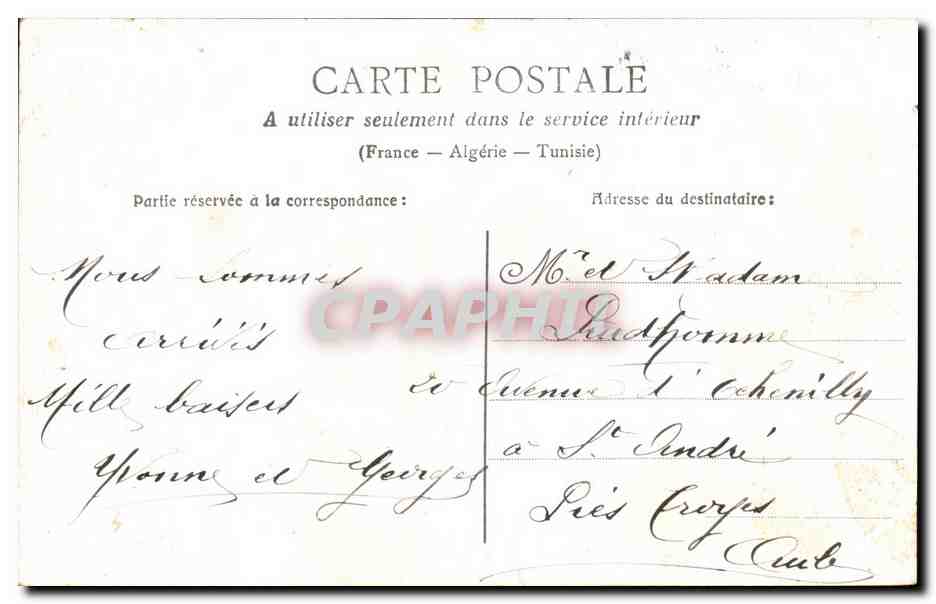 CARTE POSTALE
A utiliser seulement dans le service intérieur
(France — Algérie — Tunisie)
Partie réservée à la correspondance :
Adresse du destinataire :
Nous sommes
arrivés
Mille baisers
Yvonne et Georges
Mr et Madame
Prudhomme
20 Avenue d'Echenilly
à St André
Près Troyes
Aube
CPAPHIL